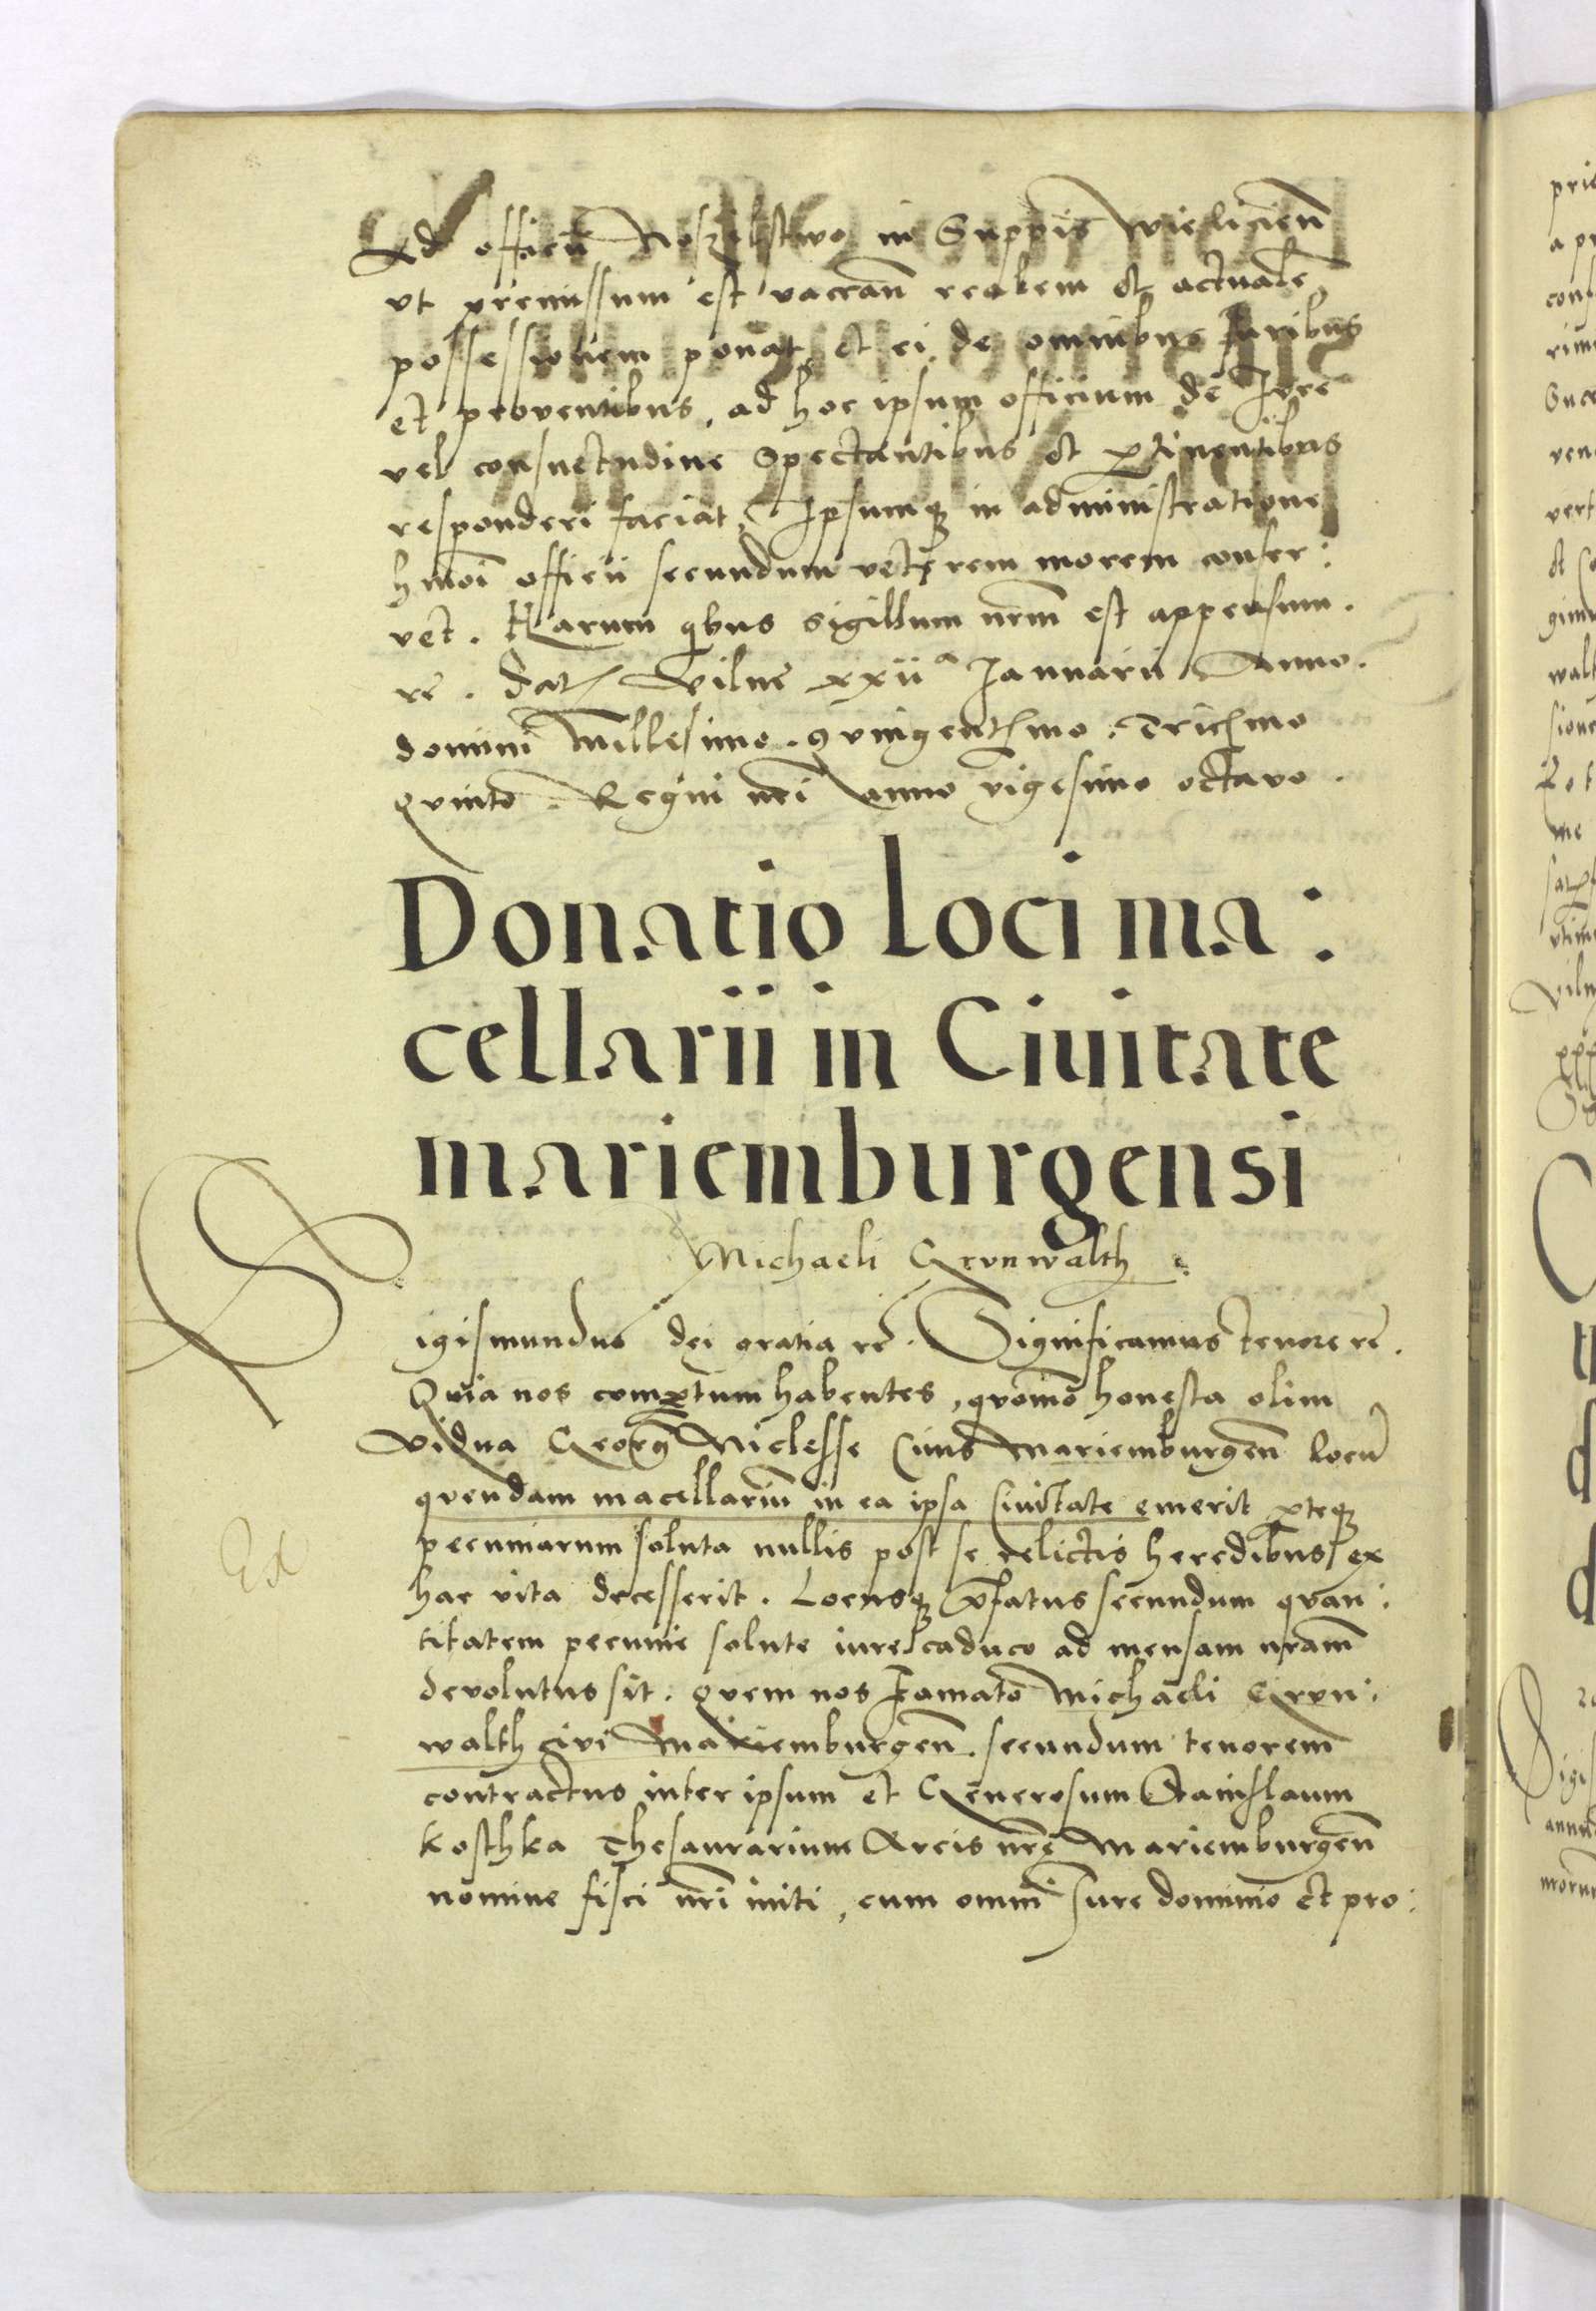 Ad officiu Noszilstwo in Suppis Wielicien
vt premissum est vacan realem et actuale
possessionem ponat et ei de omnibus Juribus
et proventibus, ad hoc ipsum officium de Jure
vel consuetudine Spectantibus et ptinentibus
responderi faciat, Ipsumq in administratione
hmoi officii secundum veterem morem conser:
vet. Harum qbus sigillum nrm est appensum.
rc. Dat Vilne xxiia Januarii Anno.
domini Millesimo quingentmo Tricmo
quinto. Regni nri anno vigesimo octavo.
Donatio loci ma:
cellarii in Ciuitate
mariemburgensi
Michaeli Grvnwalth
Sigismundus dei gratia rc. Significamus tenore rc.
Quia nos comptum habentes, quomo honesta olim
Vidua Georg Niclesse Ciuis Mariemburgen locu
quendam macellariu in ea ipsa Ciuitate emerit pteq
Ex
pecuniarum soluta nullis post se relictis heredibus ex
hac vita decesserit. Locusq pfatus secundum quan:
titatem pecunie solute iure caduco ad mensam nram
devolutus sit. quem nos Famato Michaeli Grvn:
walth civi Mariemburgen. secundum tenorem
contractus inter ipsum et Generosum Stanislaum
Kosthka Thesaurarium Arcis nre Mariemburgen
nomine fisci nri initi, cum omni Jure dominio et pro: